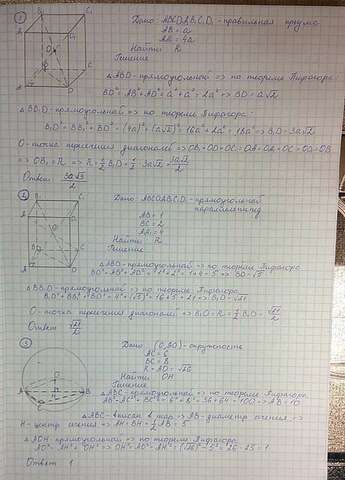 1
Дано: ABCDA₁B₁C₁D₁ - правильная призма
AB = a
AA₁ = 4a
Найти: R
Решение
△ABD - прямоугольный => по теореме Пифагора:
BD² = AB² + AD² = a² + a² = 2a² => BD = a√2
△BB₁D - прямоугольный => по теореме Пифагора:
B₁D² = BB₁² + BD² = (4a)² + (a√2)² = 16a² + 2a² = 18a² => B₁D = 3a√2
O - точка пересечения диагоналей =>
=> OB₁ = R => R = ½ B₁D = ½ · 3a√2 = 3a√2/2
Ответ: 3a√2/2
2
Дано: ABCDA₁B₁C₁D₁ - прямоугольный
параллелепипед
AB = 1
BC = 2
AA₁ = 4
Найти: R
Решение
△ABD - прямоугольный => по теореме Пифагора
BD² = AB² + AD² = 1² + 2² = 1 + 4 = 5 => BD = √5
△BB₁D - прямоугольный => по теореме Пифагора
B₁D² = BB₁² + BD² = 4² + (√5)² = 16 + 5 = 21 => B₁D = √21
O - точка пересечения диагоналей => B₁O = R = ½ B₁D = √21/2
Ответ √21/2
3
Дано: (O, AO) - окружность
AC = 6
BC = 8
R = AO = √26
Найти: OH
Решение
△ABC - прямоугольный => по теореме Пифагора
AB² = AC² + BC² = 6² + 8² = 36 + 64 = 100 => AB = 10
△ABC - вписан в шар => AB - диаметр сечения =>
H - центр сечения => AH = BH = ½ AB = 5
△AOH - прямоугольный => по теореме Пифагора
AO² = AH² + OH² => OH² = AO² - AH² = (√26)² - 5² = 26 - 25 = 1
Ответ: 1